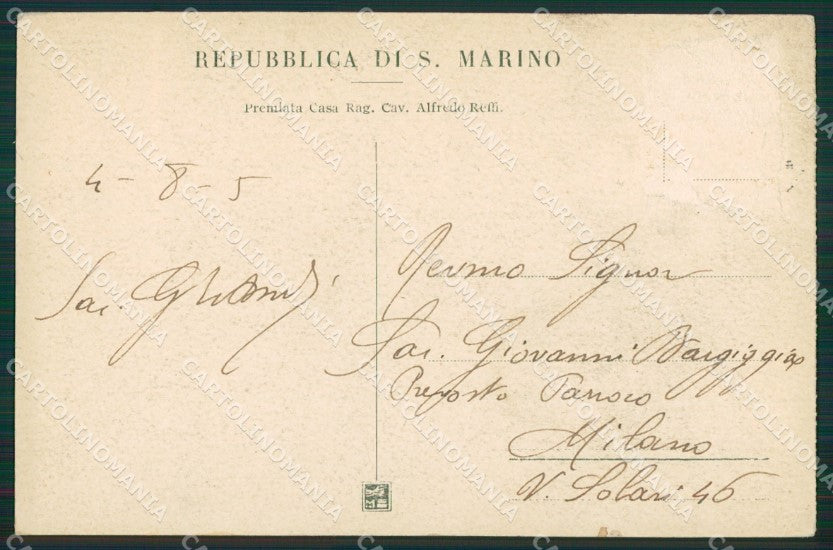 REPUBBLICA DI S. MARINO
Premiata Casa Rag. Cav. Alfredo Reffi.
4 - 8 - 5
Sac.
Revmo Signor
Sac. Giovanni
Prevosto Parroco
Milano
V. Solari 46
CARTOLINOMANIA